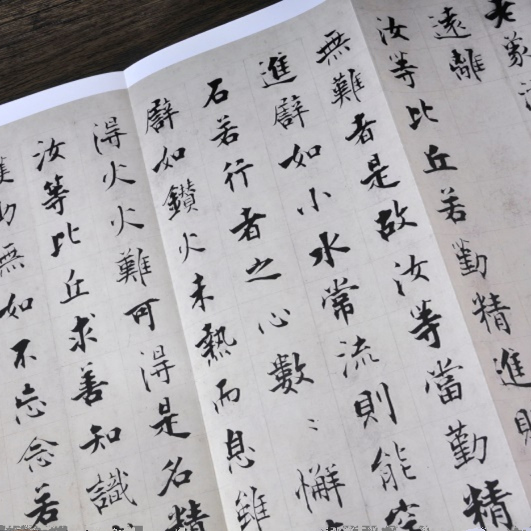 遠離
汝等比丘若勤精進則
無難者是故汝等當勤精
進譬如小水常流則能穿
石若行者之心數〻懈
譬如鑽火未熱而息雖
得火火難可得是名精
汝等比丘求善知識
無如不忘念若